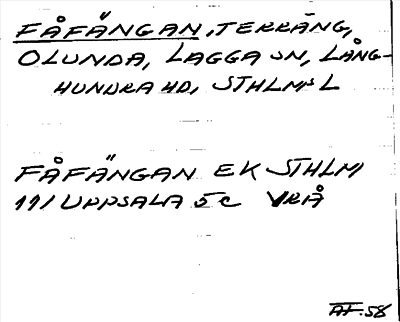 FÅFÄNGAN, TERRÄNG,
OLUNDA, LAGGA SN, LÅNG-
HUNDRA HD, STHLMS L
FÅFÄNGAN EK STHLM
111 UPPSALA 5C VRÅ
AF.58